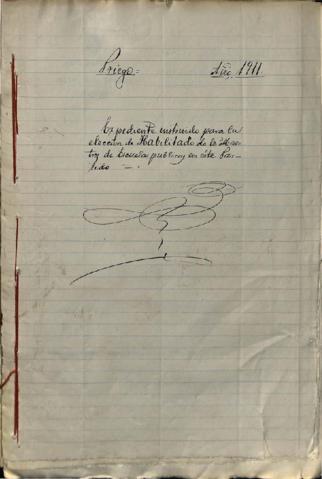 Priego= Año, 1911.
Expediente instruido para la
eleccion de Habilitado de los Maes-
tros de Escuelas publicas en este Par-
tido —.